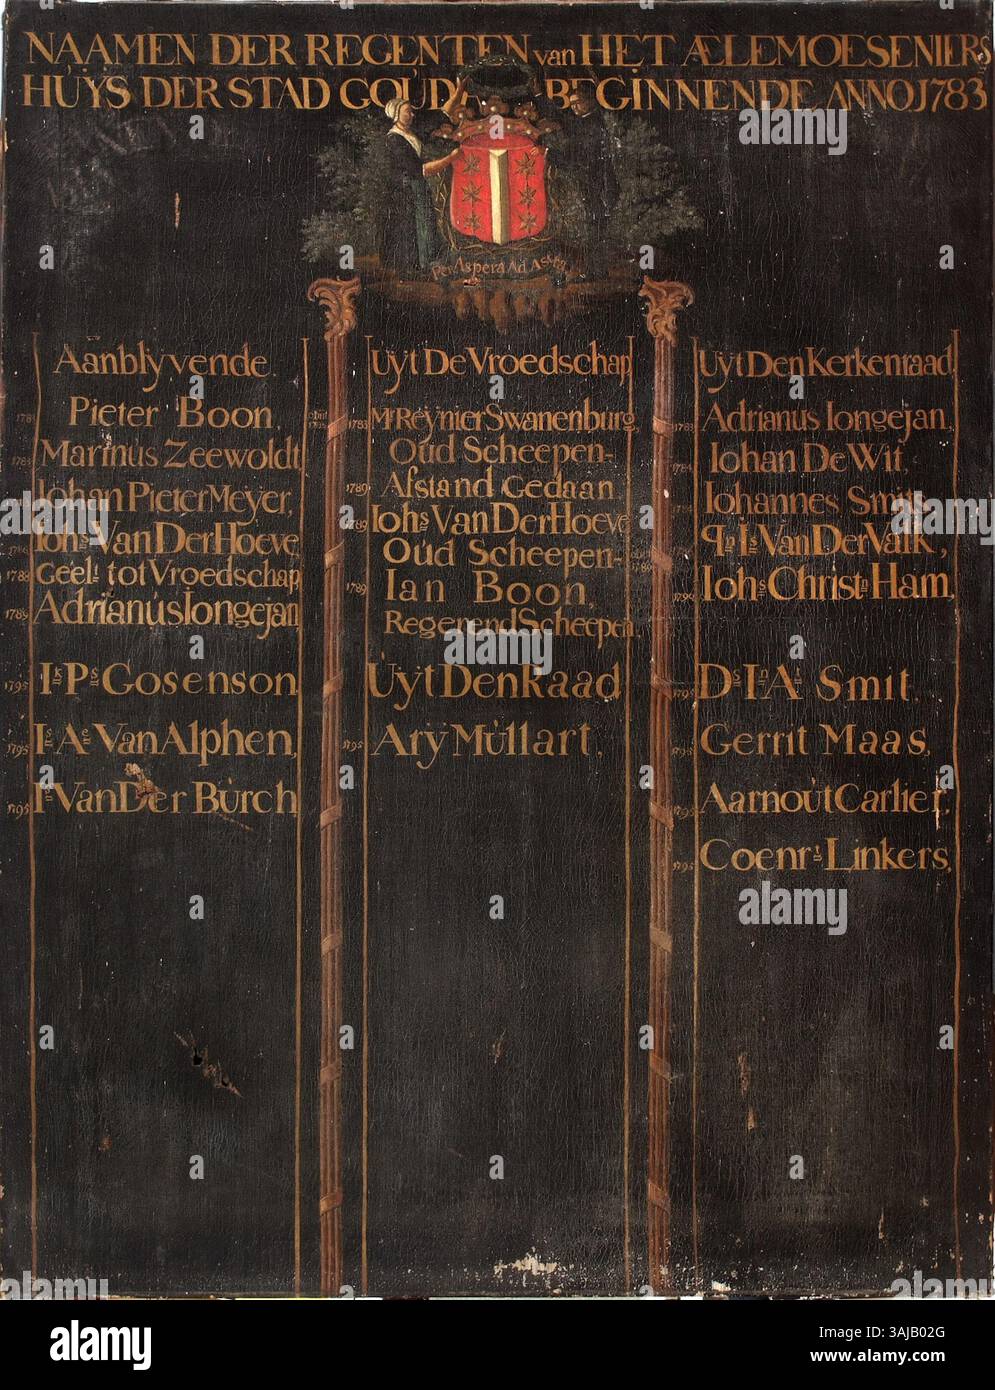 NAAMEN DER REGENTEN van HET ÆLEMOESENIERS
HUYS DER STAD GOUDA BEGINNENDE ANNO 1783
Per Aspera Ad Astra
Aanblyvende.
Pieter Boon
Marinus Zeewoldt
Iohan Pieter Meyer,
Iohs Van Der Hoeve
1788 Geelt tot Vroedschap
1789 Adrianus Iongejan
1795 Ik Ps Gosenson
1795 Is Ae Van Alphen,
1795 Van Der Burch,
Uyt De Vroedschap
1783 Mr Reynier Swanenburg
Oud Scheepen-
1789 Afstand Gedaan.
1789 Iohs Van Der Hoeve
Oud Scheepen-
1789 Ian Boon,
Regerend Scheepen
Uyt Den Raad
1795 Ary Mullart.
Uyt Den Kerkenraad
1783 Adrianus Iongejan,
1784 Iohan De Wit,
Iohannes Smits
Is Van Der Valk,
1790 Iohs Christn Ham,
1795 Ds In As Smit.
1795 Gerrit Maas,
1795 Aarnout Carlier,
1795 Coenrt Linkers,
alamy
3AJB02G
www.alamy.com